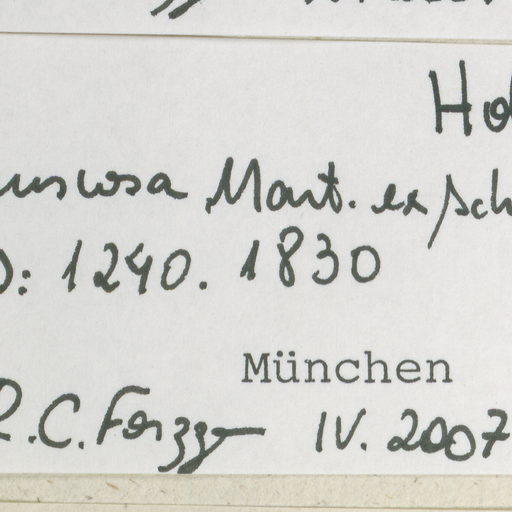 Ho
uscosa Mart. ex Sch
): 1240. 1830
München
R.C. Forzza IV. 2007